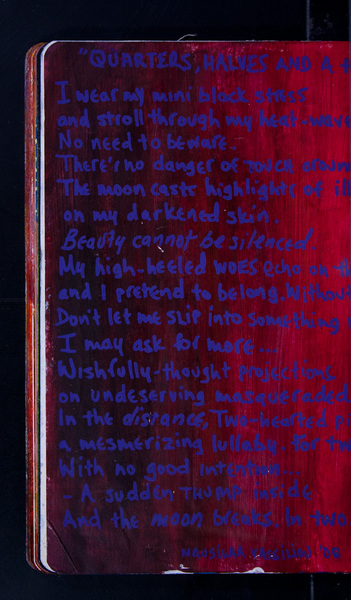 "QUARTERS, HALVES AND A
I wear my mini black stress
and stroll through my heat-wave
No need to beware.
There's no danger of touch around
The moon casts highlights of ill
on my darkened skin.
Beauty cannot be silenced.
My high-heeled WOES echo on th
and I pretend to belong. Without
Don't let me SLIP into something
I may ask for more...
Wishfully-thought projections
on undeserving masqueraded
In the distance, Two-hearted pi
a mesmerizing lullaby. For tw
With no good intention...
- A sudden THUMP inside
And the moon breaks. In two.